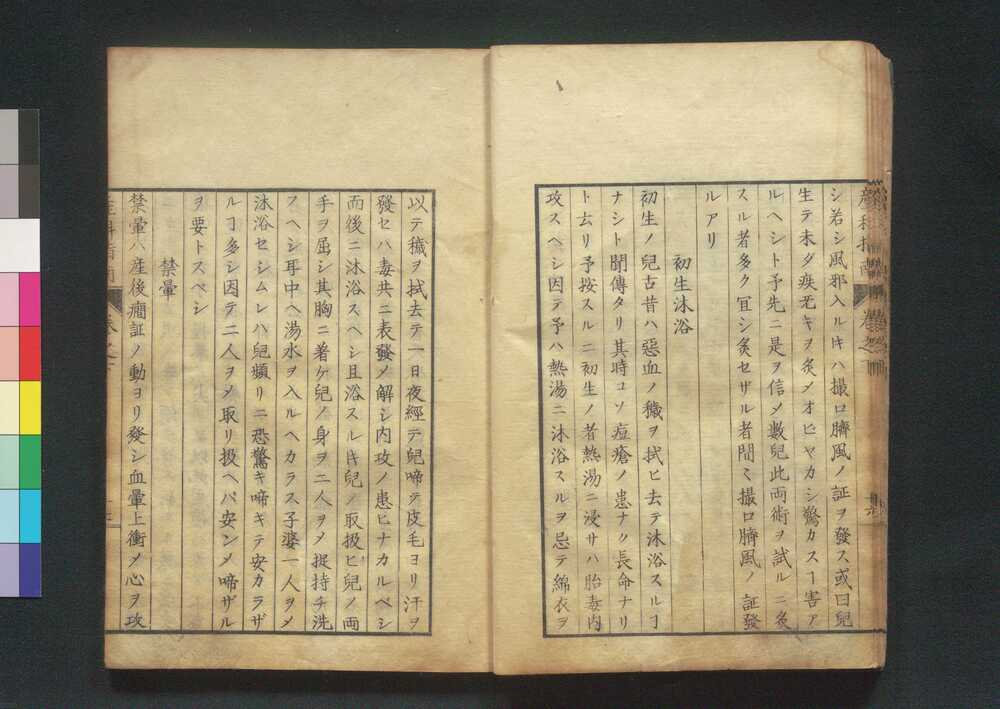 シ若シ風邪入ルキハ撮口臍風ノ証ヲ發ス或曰兒
生テ未ダ疾无キヲ灸メオビヤカシ驚カスヿ害ア
ルヘシト予先ニ是ヲ信メ數兒此両術ヲ試ルニ灸
スル者多ク冝シ灸セザル者間ミ撮口臍風ノ証發
ルアリ
初生沐浴
初生ノ兒古昔ハ惡血ノ穢ヲ拭ヒ去テ沐浴スルヿ
ナシト聞傳タリ其時コソ痘瘡ノ患ナク長命ナリ
ト云リ予按スルニ初生ノ者熱湯ニ浸サハ胎毒内
攻スヘシ因テ予ハ熱湯ニ沐浴スルヲ忌テ綿衣ヲ
以テ穢ヲ拭去テ一日夜經テ兒啼テ皮毛ヨリ汗ヲ
發セハ毒共ニ表發メ解シ内攻ノ患ヒナカルベシ
而後ニ沐浴スヘシ且浴スルキ兒ノ取扱ヒ兒ノ両
手ヲ屈シ其胸ニ著ケ兒ノ身ヲ二人ヲメ捉持チ洗
フヘシ耳中ヘ湯水ヲ入ルヘカラス子婆一人ヲメ
沐浴セシムレハ兒頻リニ恐驚キ啼キテ安カラザ
ルヿ多シ因テ二人ヲメ取リ扱ヘバ安ンメ啼ザル
ヲ要トスベシ
禁暈
禁暈ハ産後癇証ノ動ヨリ發シ血暈上衝メ心ヲ攻